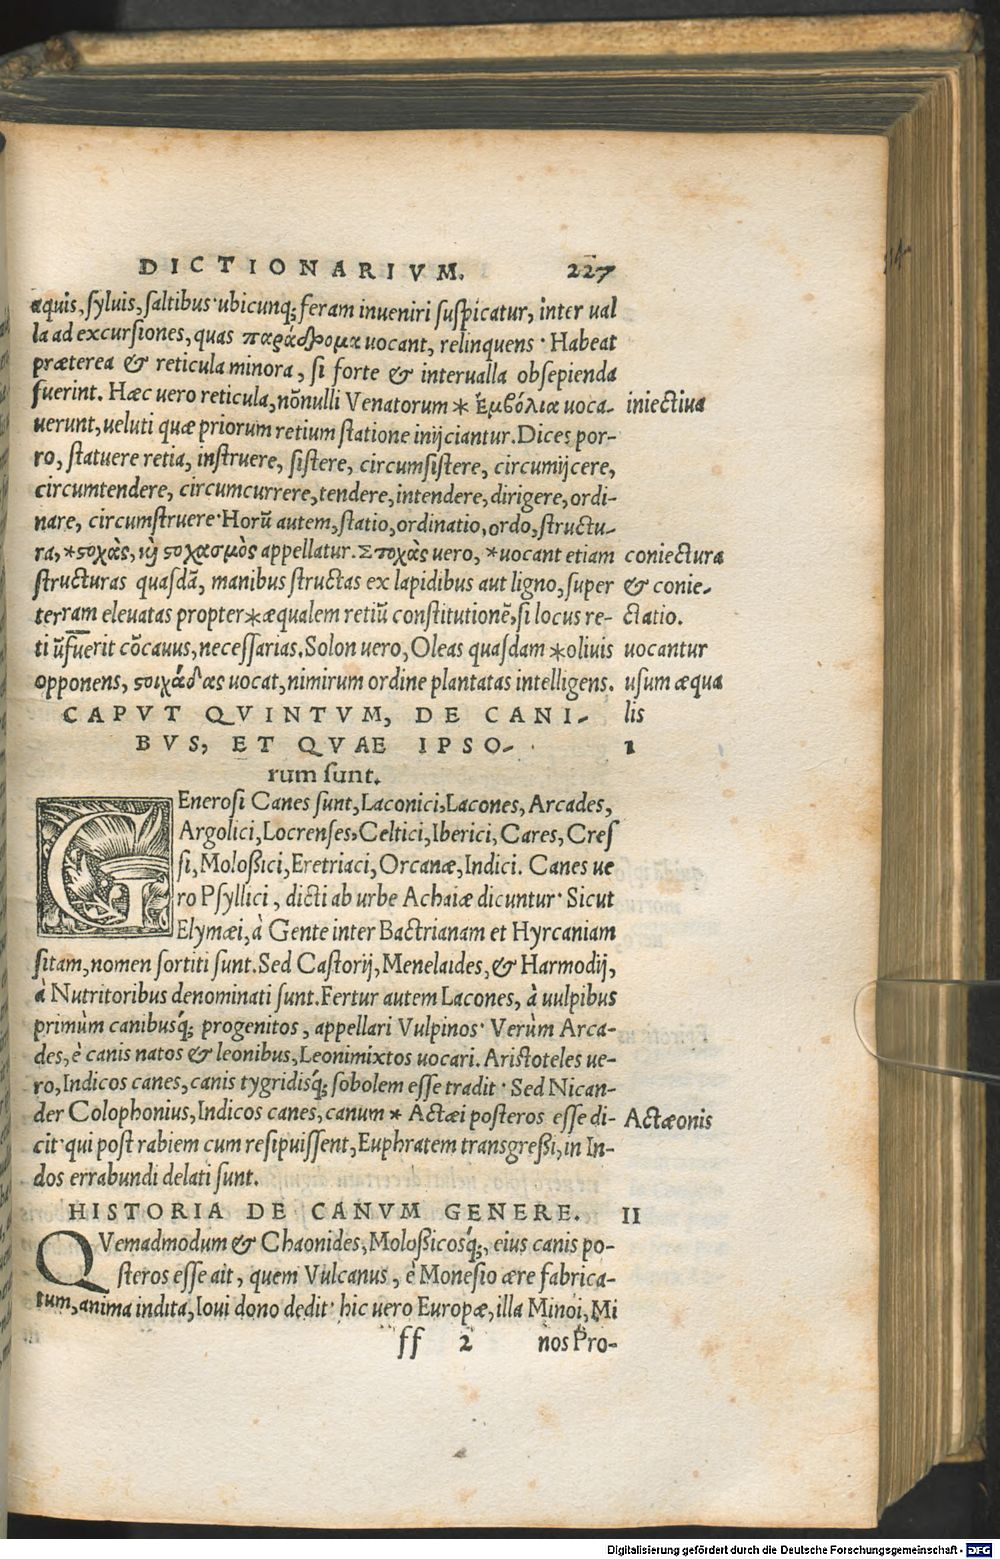 DICTIONARIVM. 227
114
aquis, syluis, saltibus· ubicunq; feram inueniri suspicatur, inter ual
la ad excursiones, quas παράδρομα uocant, relinquens · Habeat
præterea & reticula minora, si forte & interualla obsepienda
fuerint. Hæc uero reticula, nōnulli Venatorum * ἐμβόλια uoca- iniectiua
uerunt, ueluti quæ priorum retium statione inijciantur. Dices por-
ro, statuere retia, instruere, sistere, circumsistere, circumijcere,
circumtendere, circumcurrere, tendere, intendere, dirigere, ordi-
nare, circumstruere· Horū autem, statio, ordinatio, ordo, structu-
ra, *ϛοχὰς, ϗ̀ ϛοχασμὸς appellatur. Στοχὰς uero, *uocant etiam coniectura
structuras quasdā, manibus structas ex lapidibus aut ligno, super & conie-
terram eleuatas propter * æqualem retiū constitutionē, si locus re- ctatio.
ti ūfuerit cōcauus, necessarias. Solon uero, Oleas quasdam * oliuis uocantur
opponens, ϛοιχάδας uocat, nimirum ordine plantatas intelligens. usum æqua
CAPVT QVINTVM, DE CANI- lis
BVS, ET QVAE IPSO- 1
rum sunt.
GEnerosi Canes sunt, Laconici, Lacones, Arcades,
Argolici, Locrenses, Celtici, Iberici, Cares, Cres
si, Moloßici, Eretriaci, Orcanæ, Indici. Canes ue
ro Psyllici, dicti ab urbe Achaiæ dicuntur· Sicut
Elymæi, à Gente inter Bactrianam et Hyrcaniam
sitam, nomen sortiti sunt. Sed Castorij, Menelaides, & Harmodij,
à Nutritoribus denominati sunt. Fertur autem Lacones, à uulpibus
primùm canibusq́; progenitos, appellari Vulpinos· Verùm Arca-
des, è canis natos & leonibus, Leonimixtos uocari. Aristoteles ue-
ro, Indicos canes, canis tygridisq́; sobolem esse tradit · Sed Nican-
der Colophonius, Indicos canes, canum * Actæi posteros esse di- Actæonis
cit· qui post rabiem cum resipuissent, Euphratem transgreßi, in In-
dos errabundi delati sunt.
HISTORIA DE CANVM GENERE. II
QVemadmodum & Chaonides, Moloßicosq́;, eius canis po-
steros esse ait, quem Vulcanus, è Monesio ære fabrica-
tum, anima indita, Ioui dono dedit· hic uero Europæ, illa Minoi, Mi
ff 2 nos Pro-
Digitalisierung gefördert durch die Deutsche Forschungsgemeinschaft - DFG